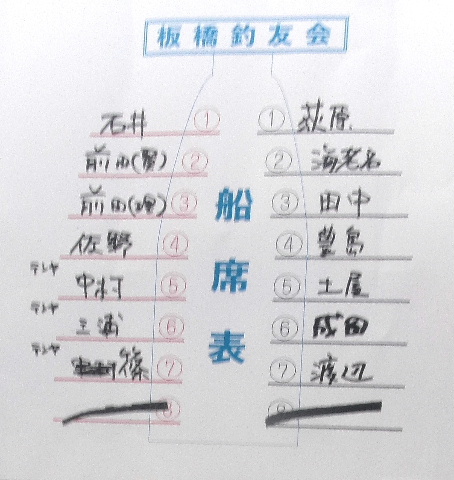 板橋釣友会
船席表
石井 ①
前田(賢) ②
前田 ③
佐野 ④
テンヤ 中村 ⑤
テンヤ 三浦 ⑥
テンヤ 篠 ⑦
⑧
① 荻原
② 海老名
③ 田中
④ 豊島
⑤ 土屋
⑥ 成田
⑦ 渡辺
⑧